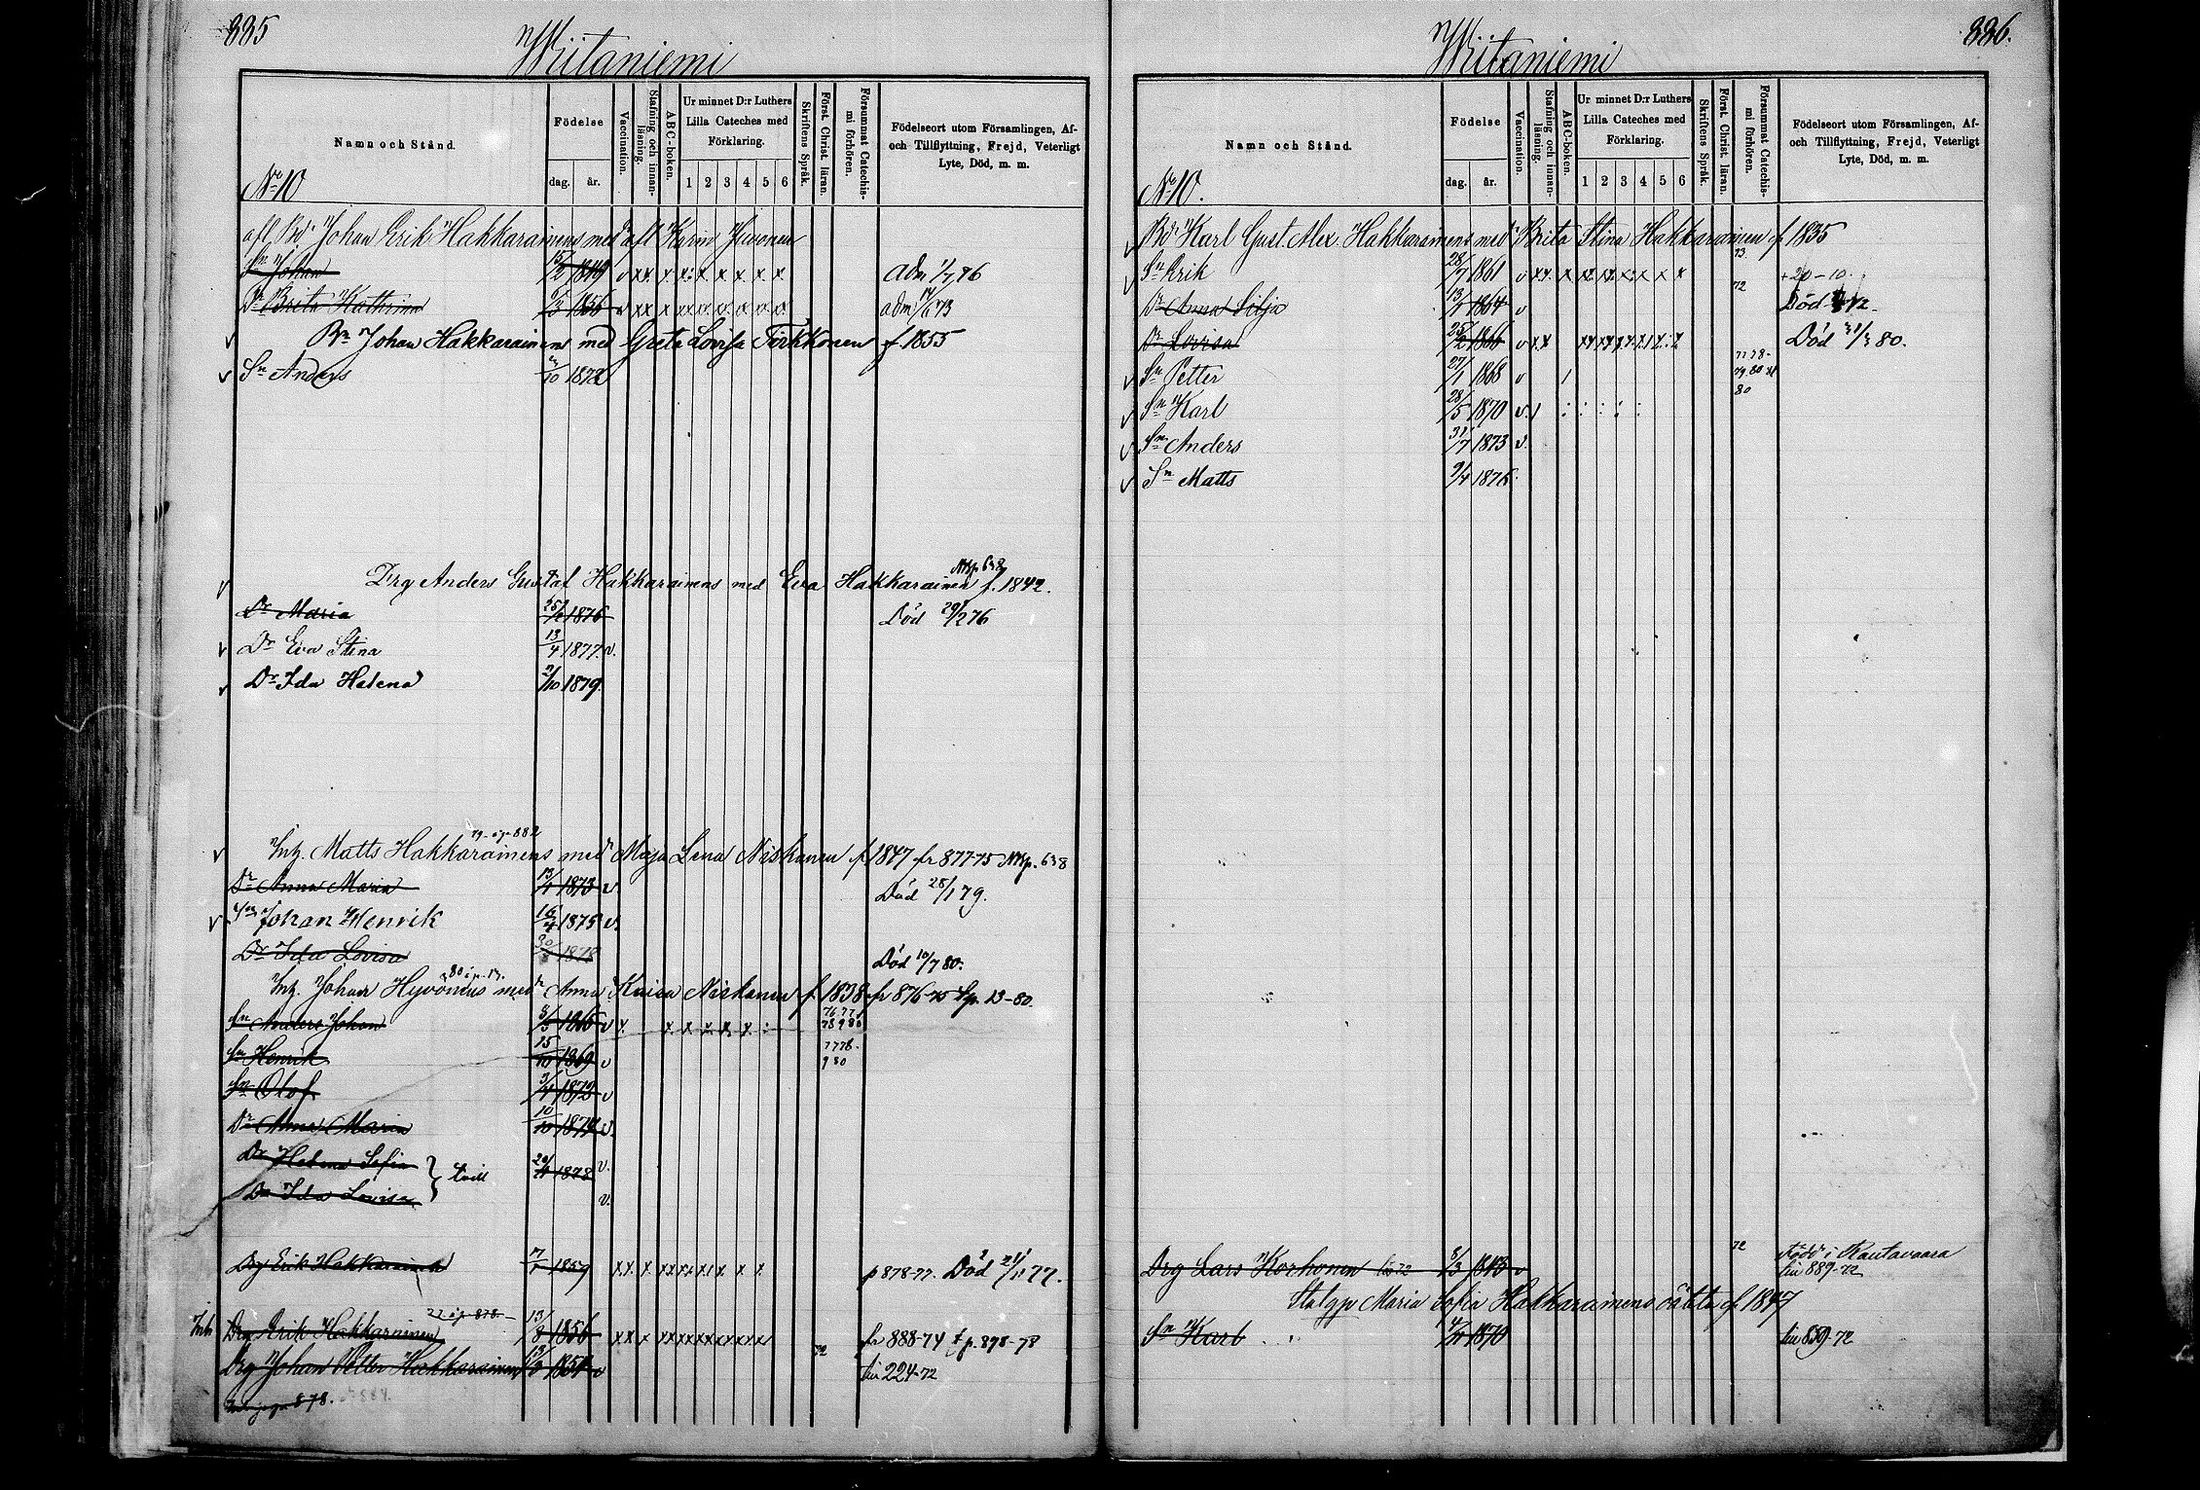 885
Wiitaniemi
Namn och Stånd.
Födelse
dag. år.
Vaccination.
Stafning och innanläsning.
ABC-boken.
Ur minnet D:r Luthers Lilla Cateches med Förklaring.
1 2 3 4 5 6
Skriftens Språk.
Först. Christ. läran.
Försummat Catechismi förhören.
Födelseort utom Församlingen, Af- och Tillflyttning, Frejd, Veterligt Lyte, Död, m. m.
No 10
afl. Bd Johan Erik Hakkarainens med afl Karin Juvonen
Sn Johan 1849 v xx x x x x x x x adm 1/7 76
Dr Brita Kathrina 1856 adm 14/6 73
v Bn Johan Hakkarainens med Greta Lovisa Tirkkonen f 1855
v Sn Anders 1878
v Drg Anders Gustaf Hakkarainens med Eva Hakkarainen f. 1842.
Dr Maria 25/2 1876 Död 29/2 76
v Dr Eva Stina 13/4 1877 v.
v Dr Ida Helena 1879
79 i p 882
v Inh. Matts Hakkarainens med Maja Lena Niskanen f 1847 fr 877-75 638
Dr Anna Maria 13/4 1873 v. Död 28/1 79.
v Sn Johan Henrik 16/4 1875 v.
Dr Ida Lovisa 1878 Död 10/7 80.
Inh. Johan Hyvönens med Anna Kaisa Niskanen f 1838 fr 876-75 13-80.
Sn Anders Johan 1866 v x x x x x x :
76 77
78 9 80
Sn Henrik 15/10 1869 v
77 78
9 80
Sn Olof 3/4 1872 v
Dr Anna Maria 10/10 1874 v.
Dr Helena Sofia } tvill 1878 v.
Dr Ida Lovisa v.
Drg Erik Hakkarainen 1857 p 878-77. Död 21/11 77.
22 i p 878
Inh Drg Erik Hakkarainen 13/8 1856 fr 888-74 t p. 878-78
Drg Johan Petter Hakkarainen 13/8 v 72 lin 224-72
878.
886.
Wiitaniemi
Namn och Stånd.
Födelse
dag. år.
Vaccination.
Stafning och innanläsning.
ABC-boken.
Ur minnet D:r Luthers Lilla Cateches med Förklaring.
1 2 3 4 5 6
Skriftens Språk.
Först. Christ. läran.
Försummat Catechismi förhören.
Födelseort utom Församlingen, Af- och Tillflyttning, Frejd, Veterligt Lyte, Död, m. m.
No 10.
v Bd Karl Gust. Alex. Hakkarainens med Brita Stina Hakkarainen f 1835
v Sn Erik 28/7 1861 v xx x 73. + 20-10.
Dr Anna Silja 13/1 1864 v 72 Död 72
Dr Lovisa 25/2 1866 v Död 80.
v Sn Petter 27/1 1868 v 77 78-
79. 80
80
v Sn Karl 28/5 1870 v.
v Sn Anders 31/7 1873 v.
v Sn Matts 9/4 1876
Drg Lars Korhonen 72 3/3 1843 v 72 Född i Rautavaara
lin 889-72
Maria Sofia Hakkarainens oäkta f 1847
Sn Karl 1870 lin 889-72